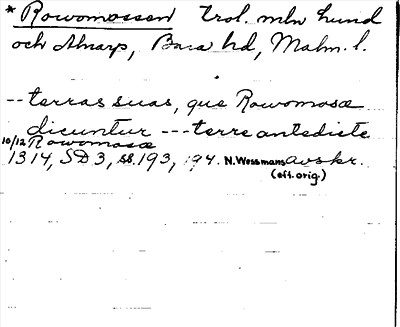 * Rowomossen trol. mln Lund
och Alnarp, Bara hd, Malm. l.
-- terras suas, que Rowomosæ
dicuntur --- terre antedicte
10/12 Rowomosæ
1314, SD 3, ss. 193, 194. N. Wessmans avskr.
(eft. orig.)